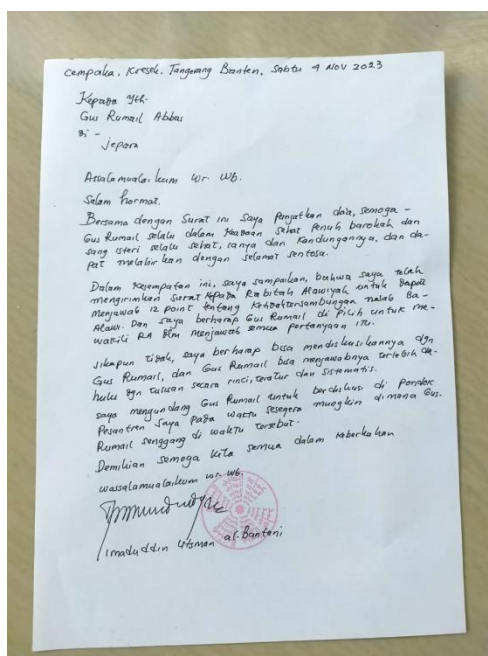 Cempaka, Kresek, Tangerang Banten, Sabtu 4 Nov 2023
Kepada Yth.
Gus Rumail Abbas
di -
Jepara
Assalamualaikum wr. wb.
Salam hormat.
Bersama dengan surat ini saya panjatkan do'a, semoga -
Gus Rumail selalu dalam keadaan sehat penuh barokah dan
sang isteri selalu sehat, ianya dan kandungannya, dan da-
pat melahirkan dengan selamat sentosa.
Dalam kesempatan ini, saya sampaikan, bahwa saya telah
mengirimkan surat kepada Rabitah Alawiyah untuk dapat
menjawab 12 point tentang ketidaktersambungan nasab Ba-
Alawi. Dan saya berharap Gus Rumail di pilih untuk me-
wakili RA dlm menjawab semua pertanyaan itu.
Jikapun tidak, saya berharap bisa mendiskusikannya dgn
Gus Rumail, dan Gus Rumail bisa menjawabnya terlebih da-
hulu dgn tulisan secara rinci, teratur dan sistematis.
Saya mengundang Gus Rumail untuk berdiskusi di Pondok
Pesantren saya pada waktu sesegera mungkin dimana Gus.
Rumail senggang di waktu tersebut.
Demikian semoga kita semua dalam keberkahan
wassalamualaikum wr. wb.
Imaduddin Utsman al-Bantani